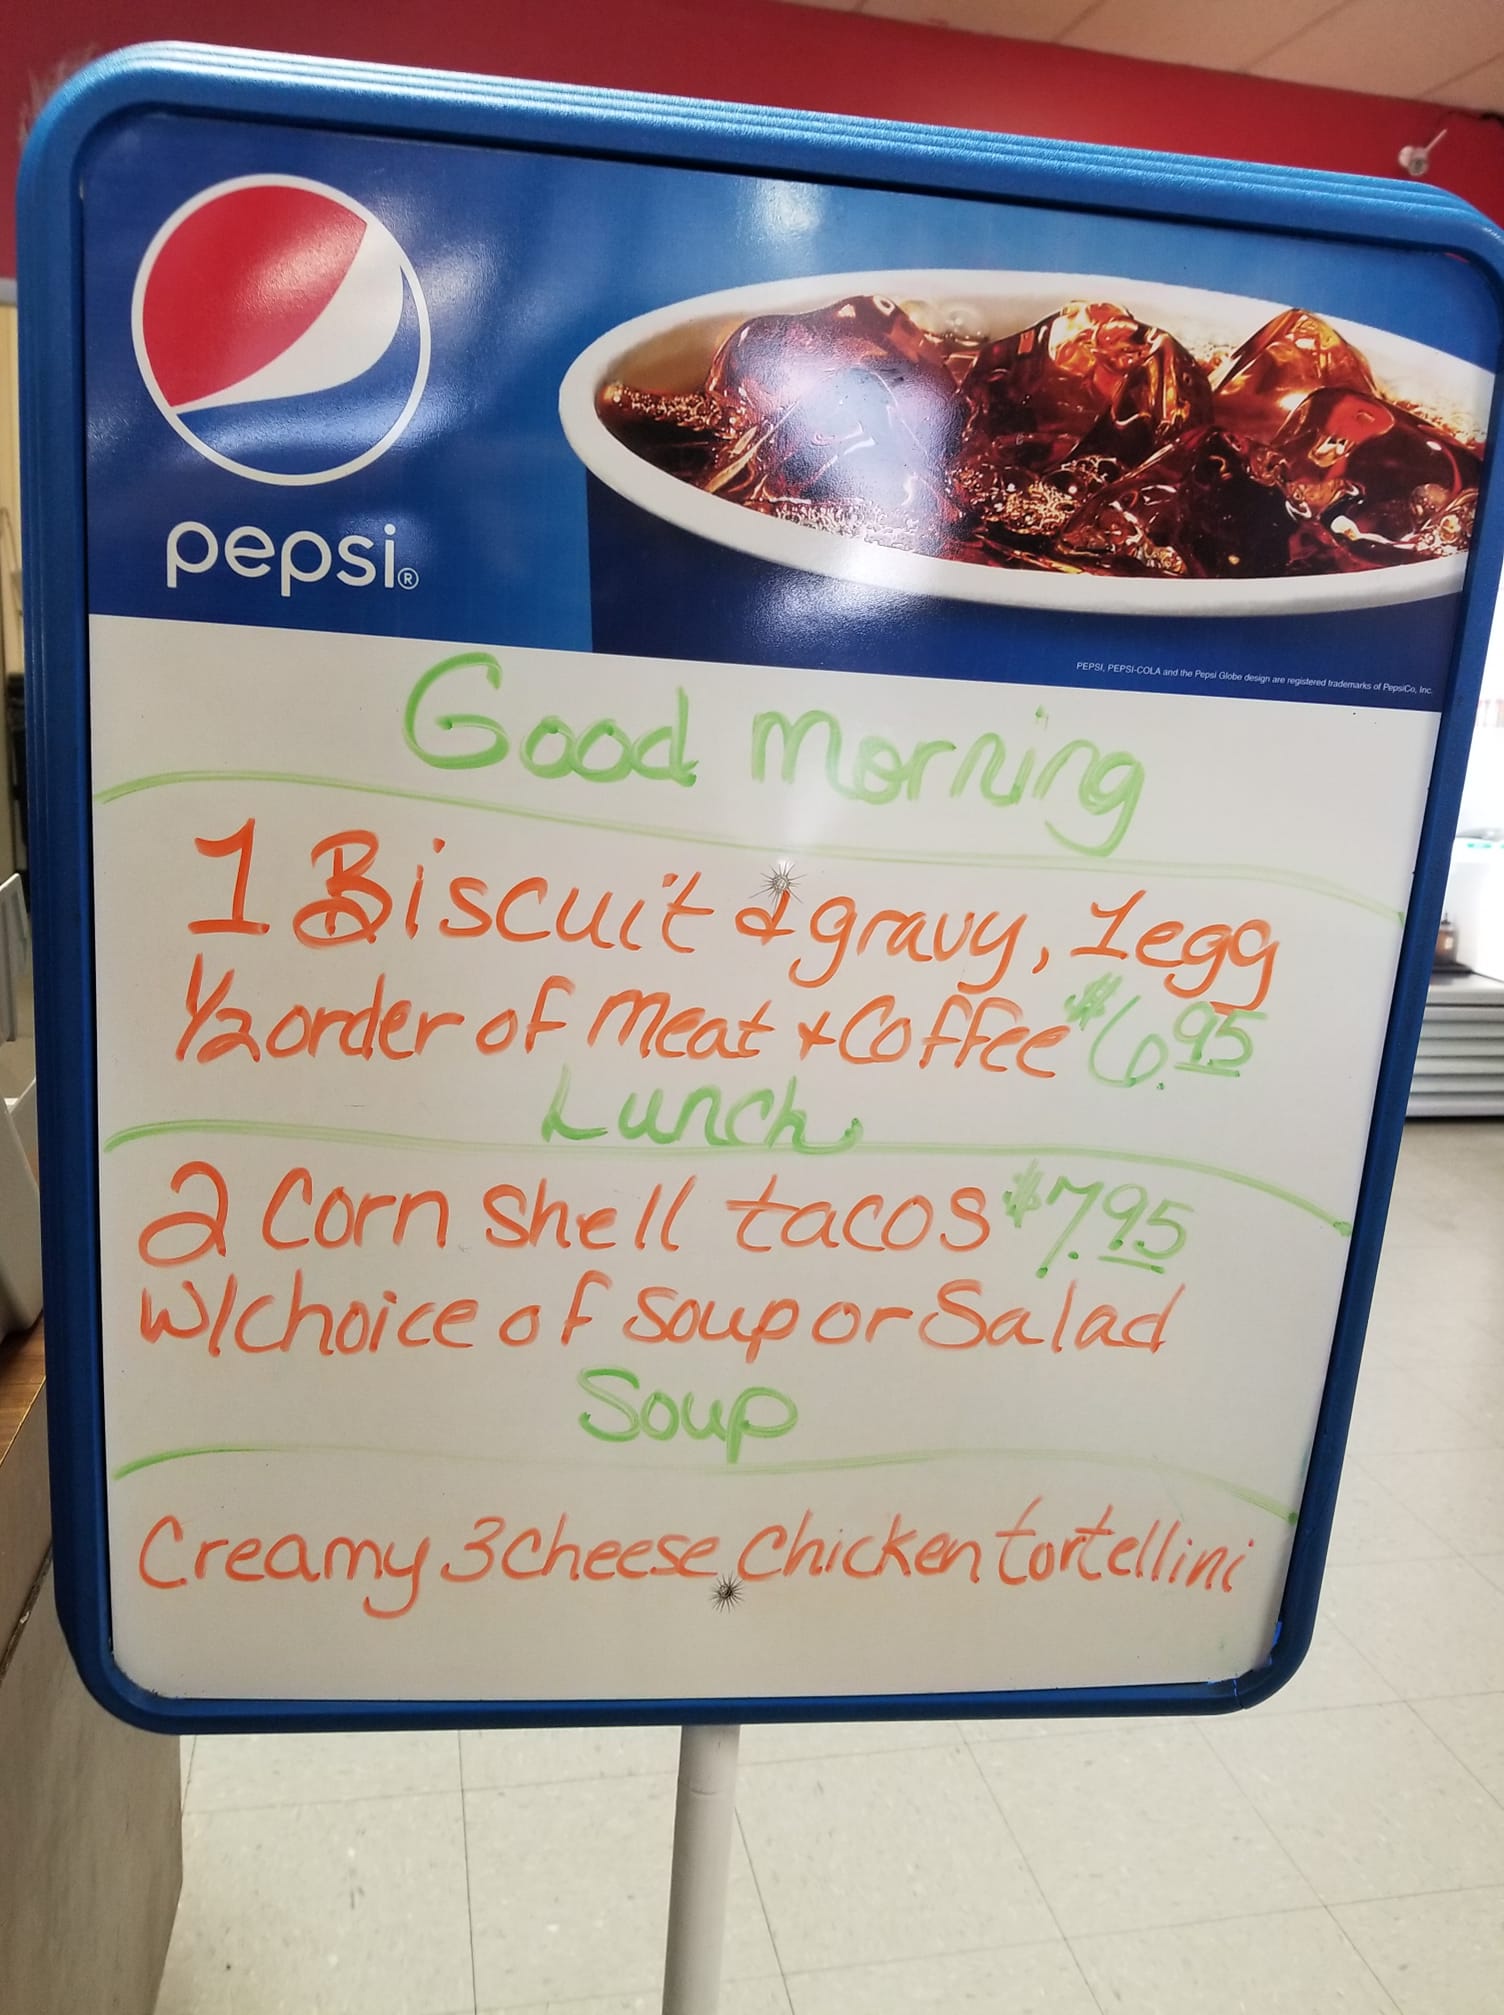 pepsi®
PEPSI, PEPSI-COLA and the Pepsi Globe design are registered trademarks of PepsiCo, Inc.
Good morning
1 Biscuit & gravy, 1 egg
1/2 order of Meat + Coffee $6.95
Lunch
2 Corn Shell tacos $7.95
W/choice of Soup or Salad
Soup
Creamy 3 cheese Chicken tortellini